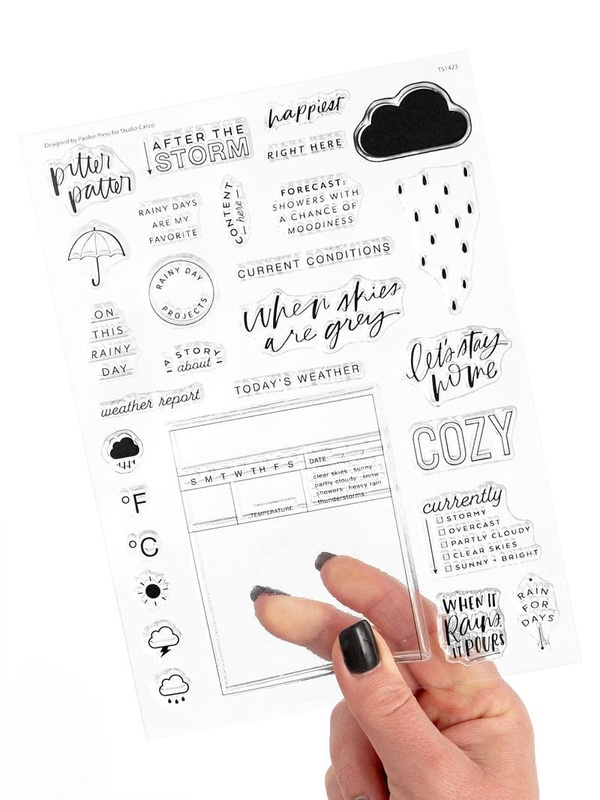 Designed by Paislee Press for Studio Calico
TS1423
pitter
patter
AFTER THE
STORM
happiest
RIGHT HERE
RAINY DAYS
ARE MY
FAVORITE
CONTENT
here
FORECAST:
SHOWERS WITH
A CHANCE OF
MOODINESS
RAINY DAY
PROJECTS
CURRENT CONDITIONS
ON
THIS
RAINY
DAY
When skies
are grey
A STORY
about
let's stay
home
TODAY'S WEATHER
weather report
COZY
S M T W TH F S
DATE:
clear skies sunny
partly cloudy snow
showers heavy rain
thunderstorms
TEMPERATURE
currently
STORMY
OVERCAST
PARTLY CLOUDY
CLEAR SKIES
SUNNY + BRIGHT
°F
°C
WHEN IT
Rains,
IT POURS
RAIN
FOR
DAYS